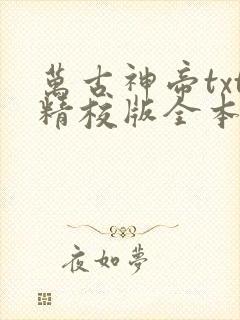 萬古神帝txt
精校版全本
夜如夢